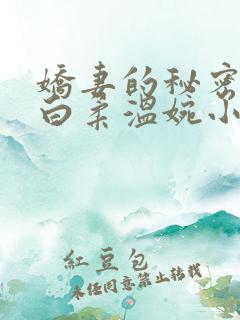 嬌妻的秘密
白柔溫婉小
紅豆包
未經同意禁止轉載